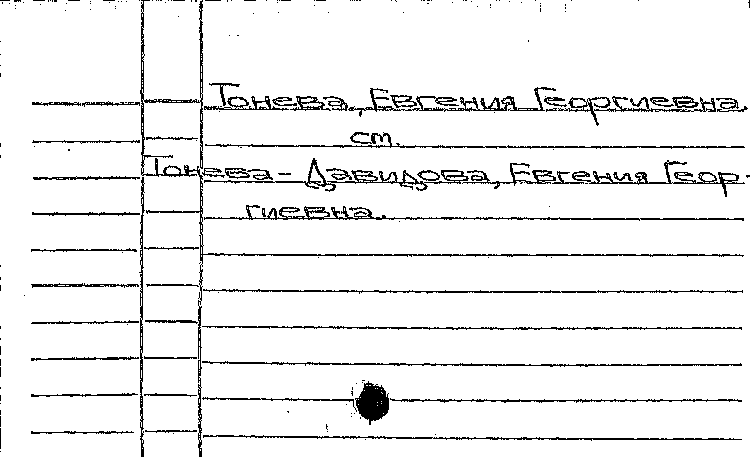 Тонева, Евгения Георгиевна.
ст.
Тонева - Давидова, Евгения Геор-
гиевна.